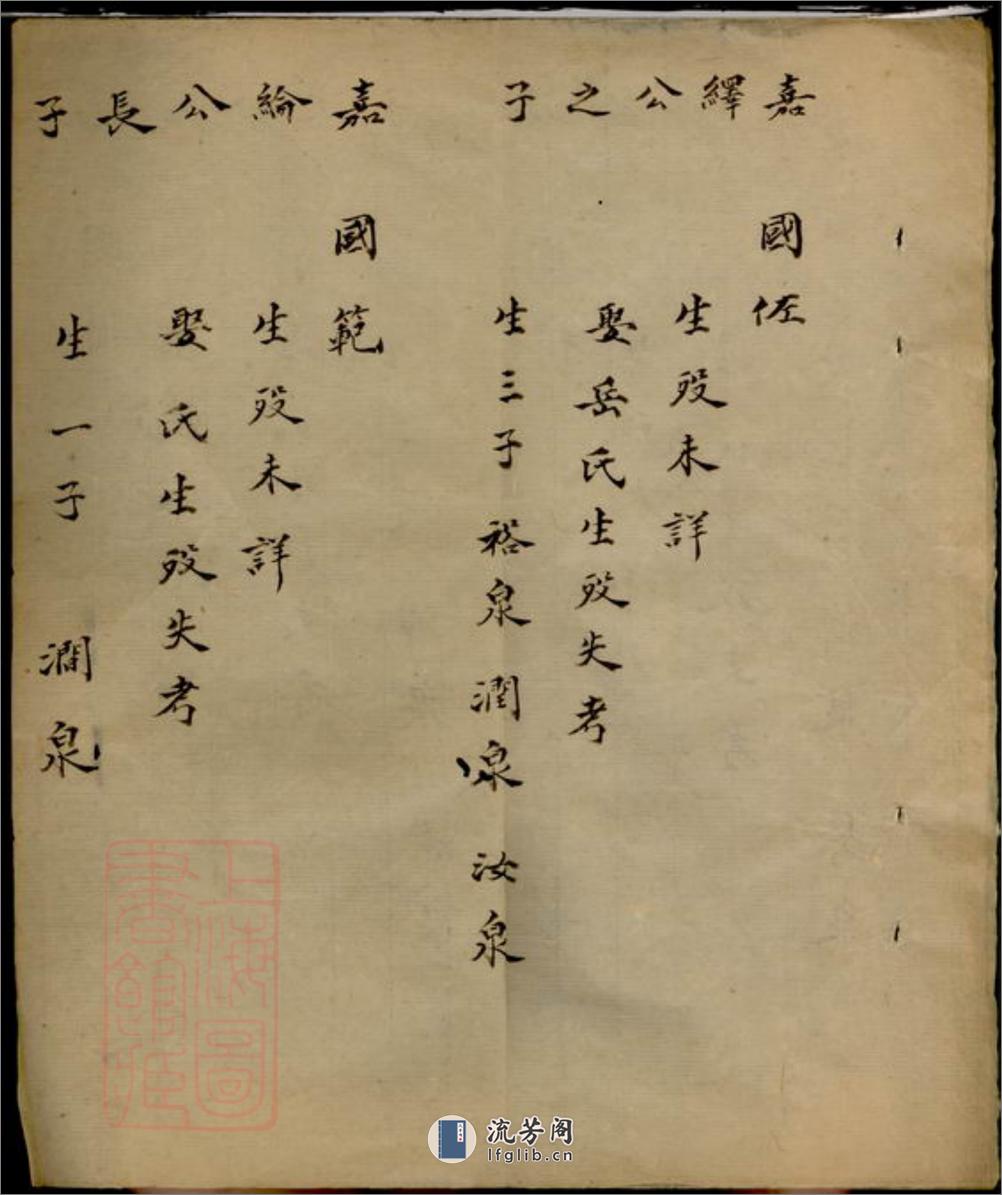 嘉繹公之子
國佐
生殁未詳
娶岳氏生殁失考
生三子 裕泉 潤泉 汝泉
嘉綸公長子
國範
生殁未詳
娶氏生殁失考
生一子 澗泉
上海圖
書館藏
流芳阁
lfglib.cn